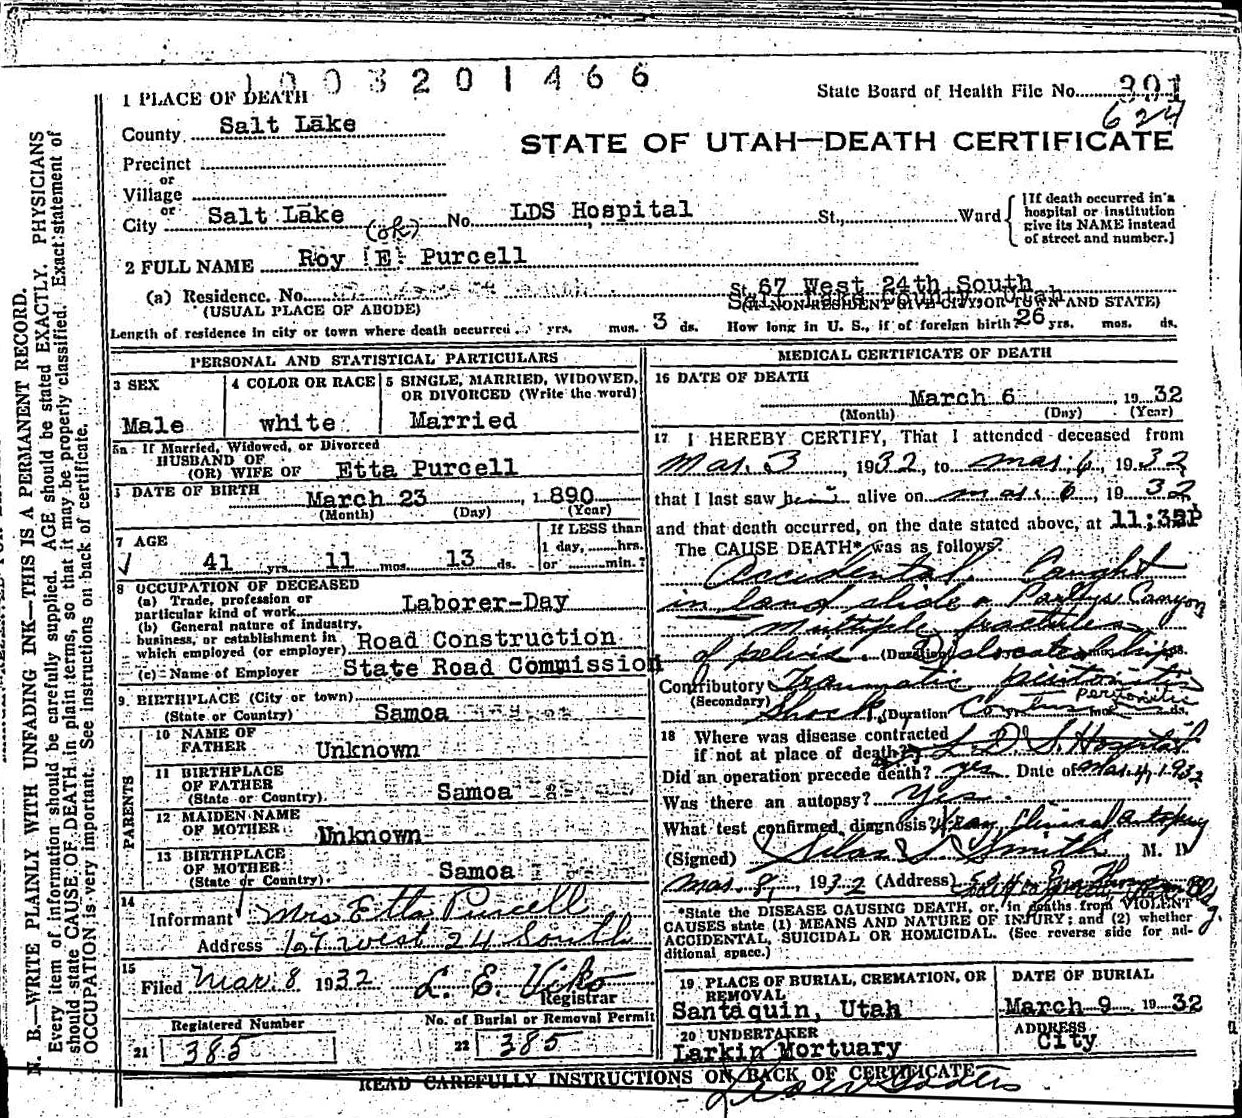 1003201466
1 PLACE OF DEATH
State Board of Health File No. 301
624
County Salt Lake
STATE OF UTAH—DEATH CERTIFICATE
Precinct
or
Village
or
City Salt Lake (ok) No. LDS Hospital St., Ward
[If death occurred in a hospital or institution give its NAME instead of street and number.]
2 FULL NAME Roy E Purcell
(a) Residence. No. St. 67 West 24th South
Salt Lake County, Utah
(USUAL PLACE OF ABODE) (IF NON-RESIDENT GIVE CITY OR TOWN AND STATE)
Length of residence in city or town where death occurred yrs. mos. 3 ds. How long in U. S., if of foreign birth? 26 yrs. mos. ds.
PERSONAL AND STATISTICAL PARTICULARS
3 SEX
Male
4 COLOR OR RACE
white
5 SINGLE, MARRIED, WIDOWED, OR DIVORCED (Write the word)
Married
5a If Married, Widowed, or Divorced
HUSBAND OF
(OR) WIFE OF Etta Purcell
DATE OF BIRTH March 23, 1890
(Month) (Day) (Year)
7 AGE
41 yrs. 11 mos. 13 ds.
If LESS than
1 day, hrs.
or min.?
8 OCCUPATION OF DECEASED
(a) Trade, profession or
particular kind of work Laborer-Day
(b) General nature of industry,
business, or establishment in
which employed (or employer) Road Construction
(c) Name of Employer State Road Commission
9. BIRTHPLACE (City or town)
(State or Country) Samoa
PARENTS
10 NAME OF
FATHER Unknown
11 BIRTHPLACE
OF FATHER
(State or Country) Samoa
12 MAIDEN NAME
OF MOTHER Unknown
13 BIRTHPLACE
OF MOTHER
(State or Country) Samoa
14
Informant Mrs Etta Purcell
Address 67 west 24 South
15
Filed Mar. 8 1932 L. E. Viko
Registrar
Registered Number
21 385
No. of Burial or Removal Permit
22 385
MEDICAL CERTIFICATE OF DEATH
16 DATE OF DEATH
March 6, 1932
(Month) (Day) (Year)
17 I HEREBY CERTIFY, That I attended deceased from
Mar. 3, 1932, to Mar. 6, 1932
that I last saw him alive on Mar. 6, 1932
and that death occurred, on the date stated above, at 11:35P
The CAUSE DEATH* was as follows:
Accidental. Caught
in land slide Parleys Canyon
Multiple fractures
of pelvis. (Duration) Dislocated hip
Contributory Traumatic peritonitis
peritonitis
(Secondary) Shock (Duration yrs. mos. ds.
18 Where was disease contracted
if not at place of death? L. D. S. Hospital
Did an operation precede death? yes Date of Mar. 4, 1932
Was there an autopsy? Yes
What test confirmed diagnosis? Xray, Clinical autopsy
(Signed) Silas S Smith M. D
Mar. 8, 1932 (Address)
*State the DISEASE CAUSING DEATH, or, in deaths from VIOLENT
CAUSES state (1) MEANS AND NATURE OF INJURY; and (2) whether
ACCIDENTAL, SUICIDAL OR HOMICIDAL. (See reverse side for ad-
ditional space.)
19 PLACE OF BURIAL, CREMATION, OR
REMOVAL
Santaquin, Utah
DATE OF BURIAL
March 9 1932
20 UNDERTAKER
Larkin Mortuary
ADDRESS
City
READ CAREFULLY INSTRUCTIONS ON BACK OF CERTIFICATE
N. B.—WRITE PLAINLY WITH UNFADING INK—THIS IS A PERMANENT RECORD.
Every item of information should be carefully supplied. AGE should be stated EXACTLY. PHYSICIANS
should state CAUSE OF DEATH in plain terms, so that it may be properly classified. Exact statement of
OCCUPATION is very important. See instructions on back of certificate.